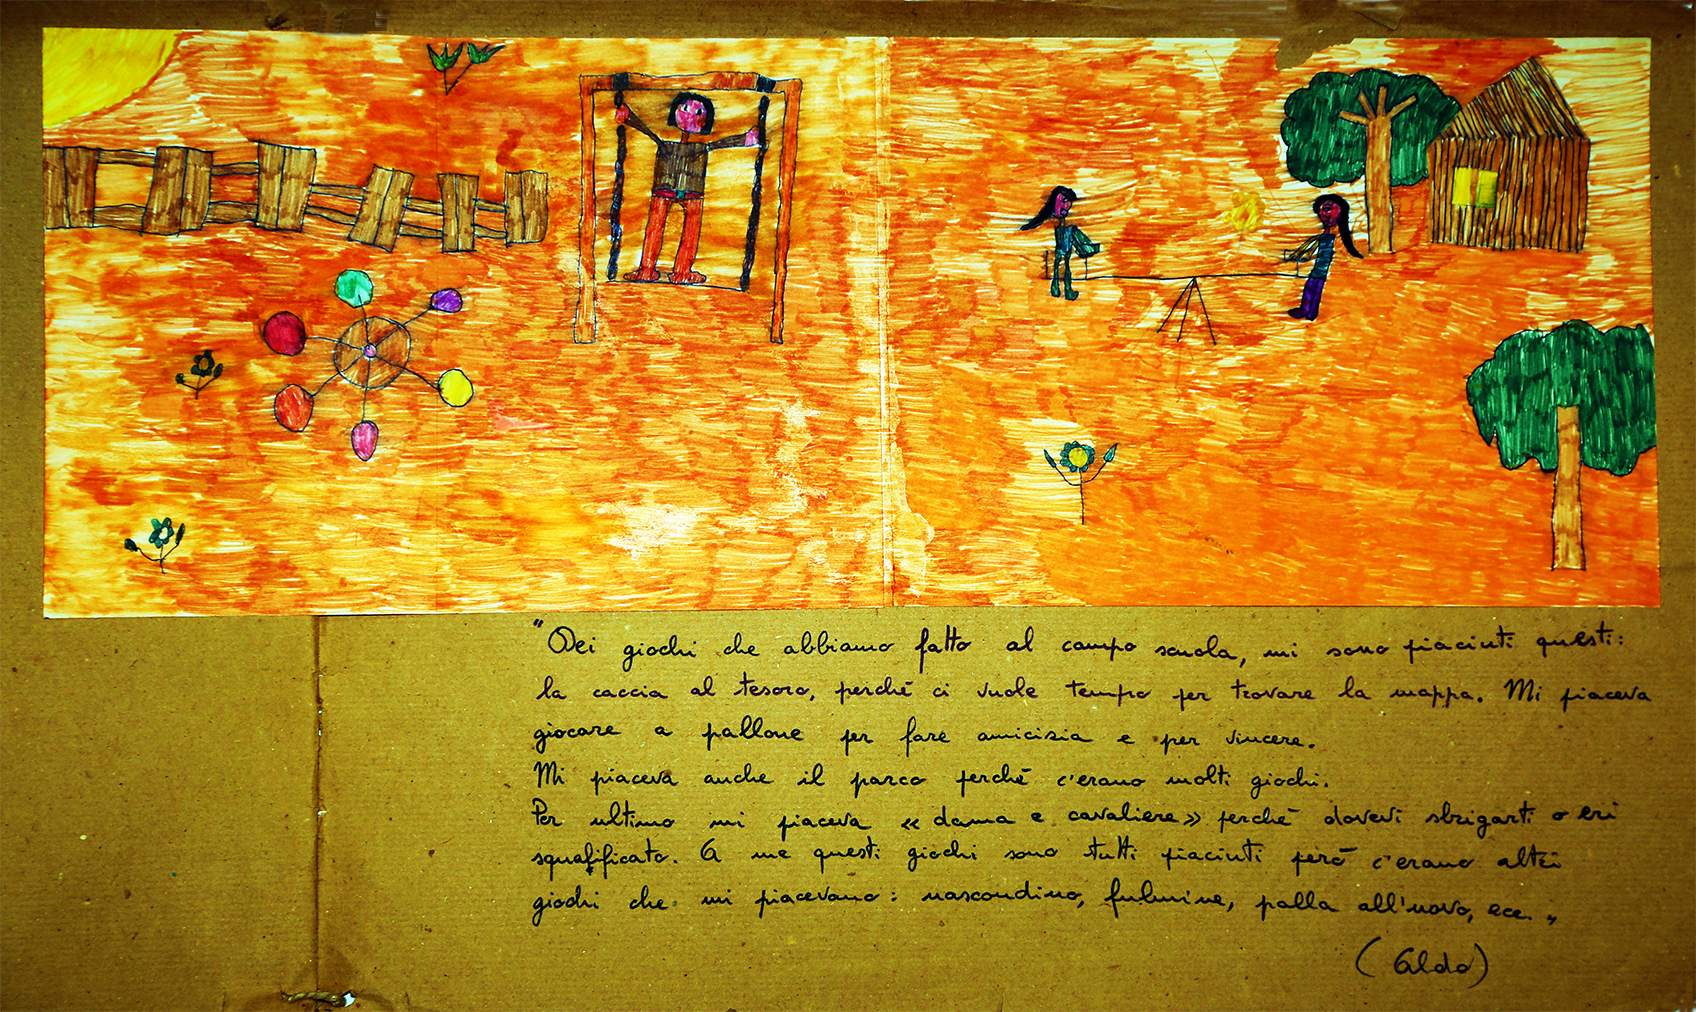 "Dei giochi che abbiamo fatto al campo scuola, mi sono piaciuti questi:
la caccia al tesoro, perché ci vuole tempo per trovare la mappa. Mi piaceva
giocare a pallone per fare amicizia e per vincere.
Mi piaceva anche il parco perché c'erano molti giochi.
Per ultimo mi piaceva «dama e cavaliere» perché dovevi sbrigarti o eri
squalificato. A me questi giochi sono tutti piaciuti però c'erano altri
giochi che mi piacevano: nascondino, fulmine, palla all'uovo, ecc."
(Aldo)